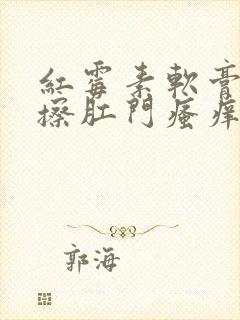 紅霉素軟膏
擦肛門瘙癢
郭海